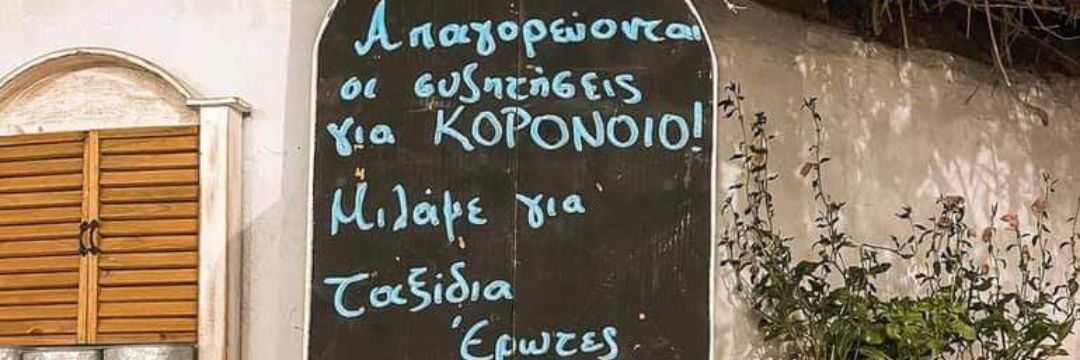 Απαγορεύονται
οι συζητήσεις
για ΚΟΡΟΝΟΙΟ!
Μιλάμε για
Ταξίδια
Έρωτες